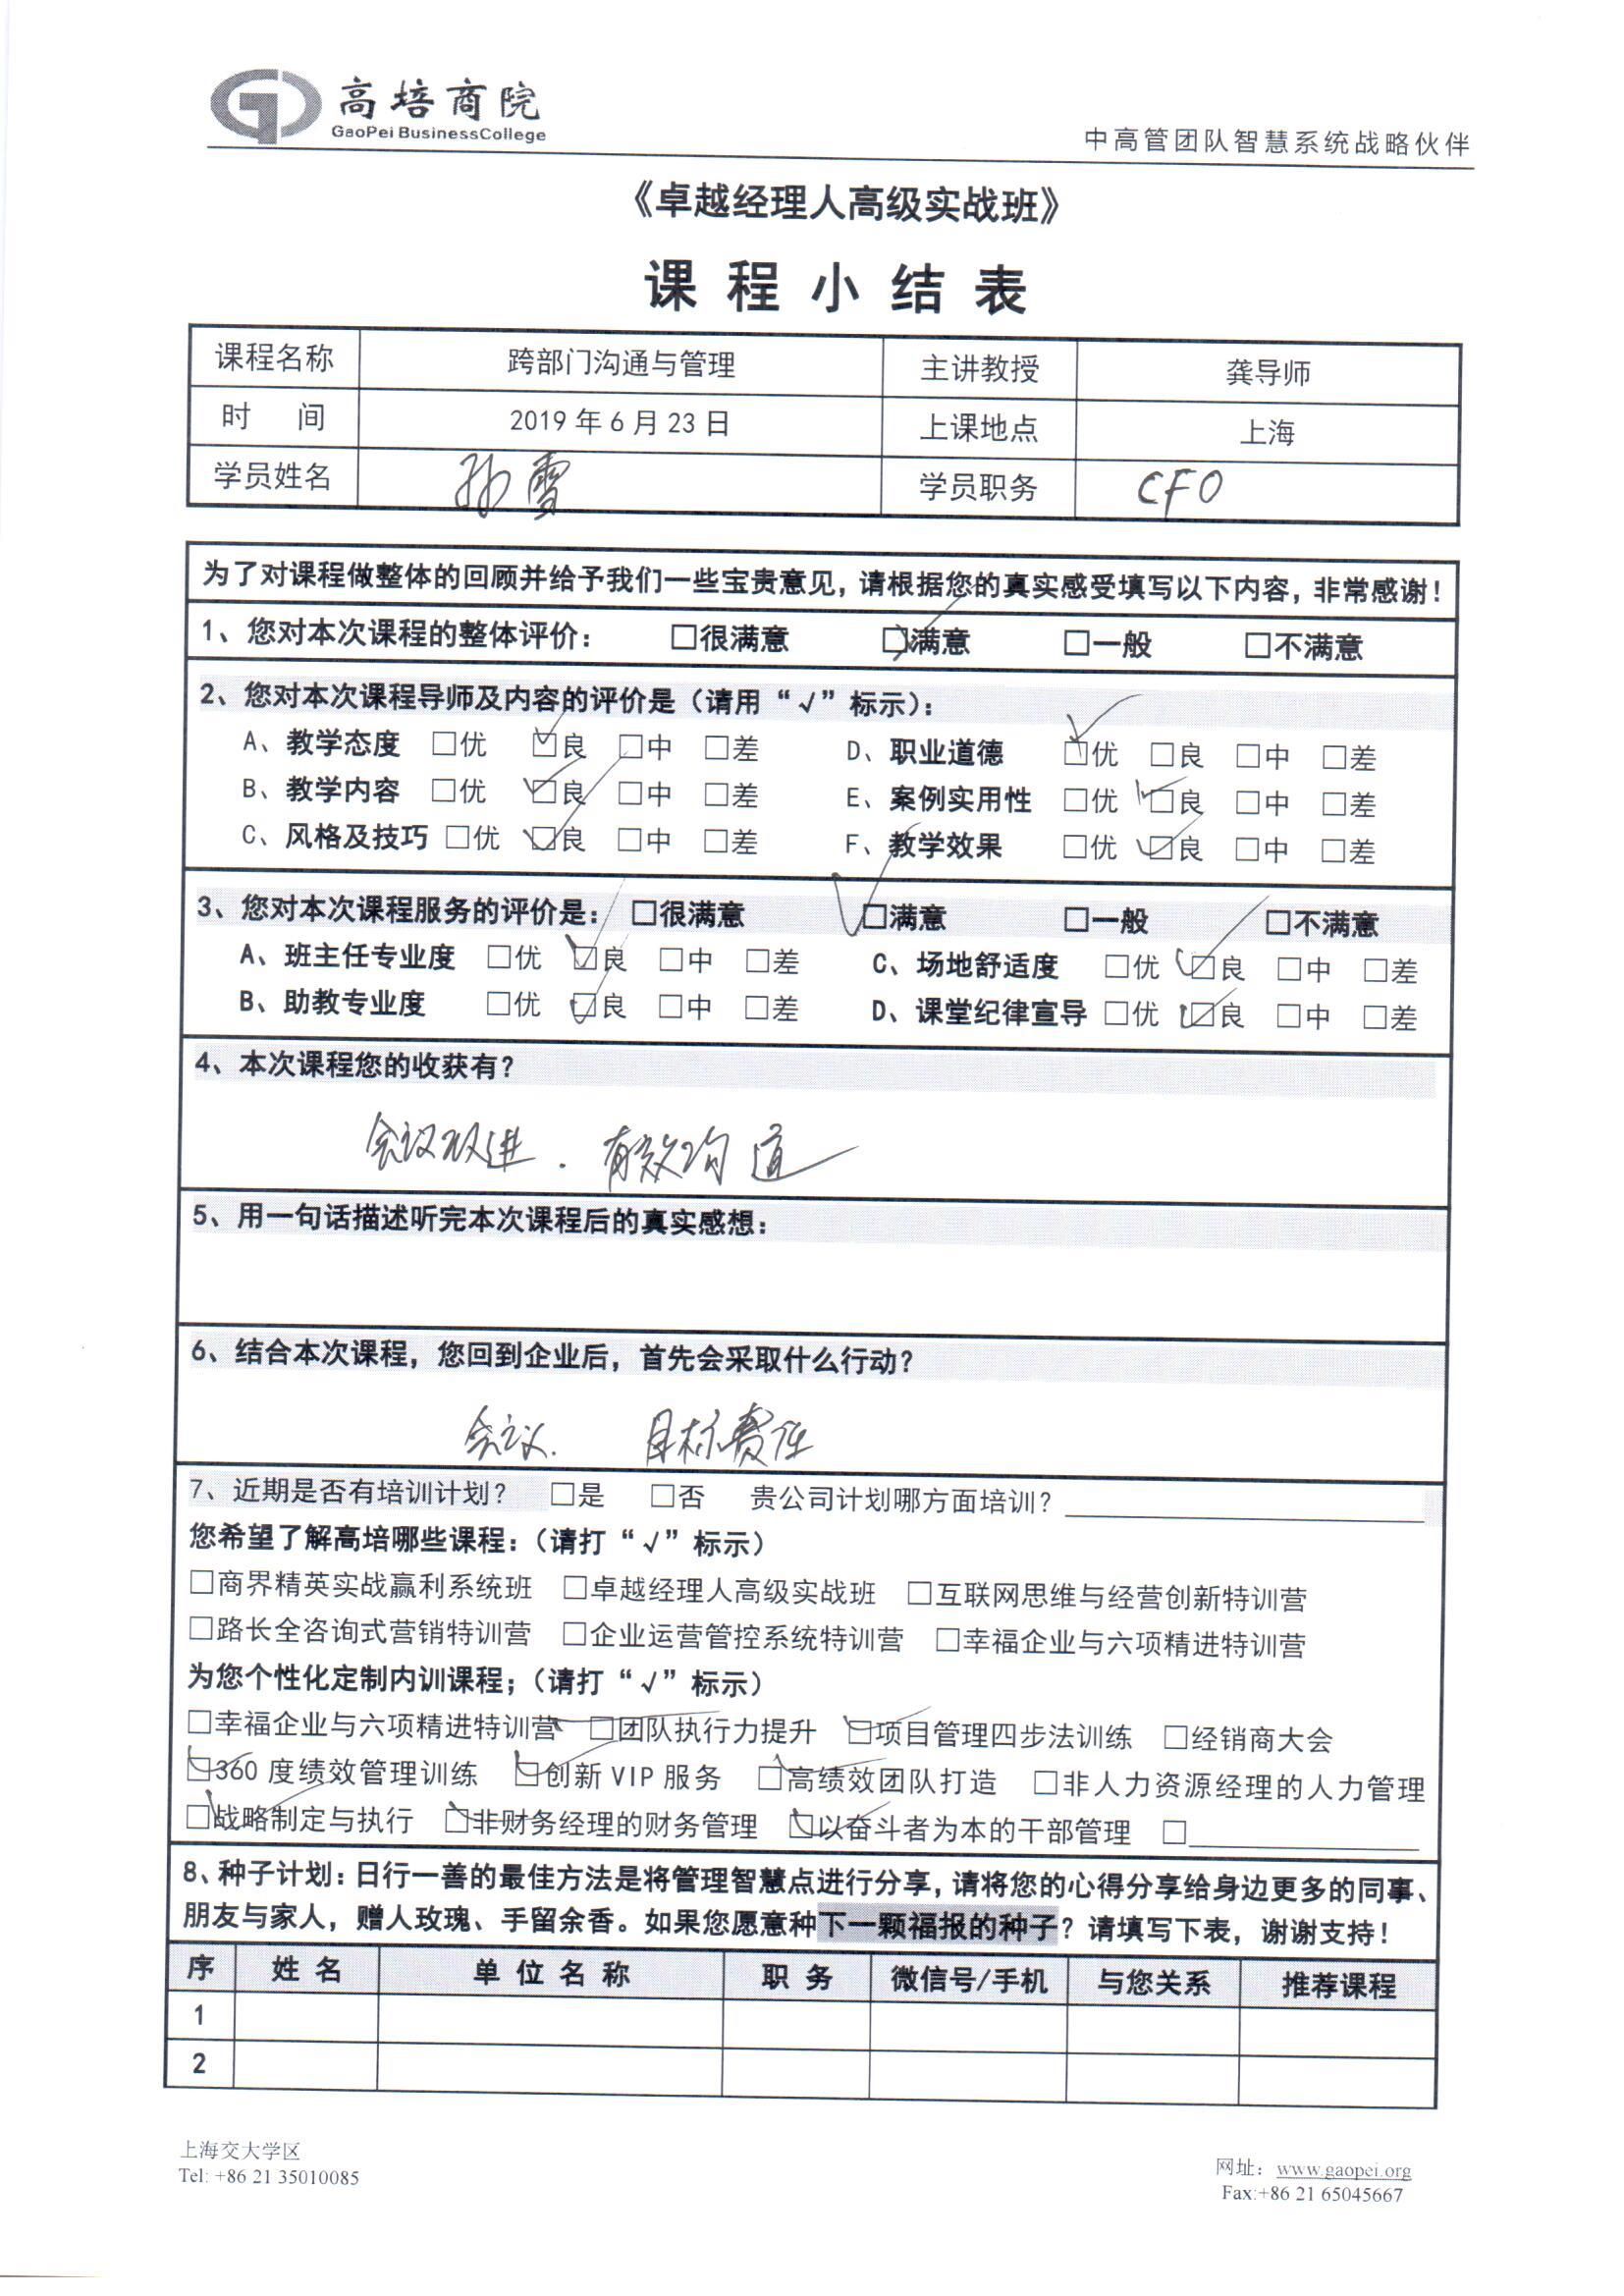 高培商院
GaoPei BusinessCollege
中高管团队智慧系统战略伙伴
《卓越经理人高级实战班》
课程小结表
课程名称 跨部门沟通与管理 主讲教授 龚导师
时 间 2019年6月23日 上课地点 上海
学员姓名 孙雪 学员职务 CFO
为了对课程做整体的回顾并给予我们一些宝贵意见，请根据您的真实感受填写以下内容，非常感谢！
1、您对本次课程的整体评价： □很满意 ☑满意 □一般 □不满意
2、您对本次课程导师及内容的评价是（请用“√”标示）：
A、教学态度 □优 ☑良 □中 □差 D、职业道德 ☑优 □良 □中 □差
B、教学内容 □优 ☑良 □中 □差 E、案例实用性 □优 ☑良 □中 □差
C、风格及技巧 □优 ☑良 □中 □差 F、教学效果 □优 ☑良 □中 □差
3、您对本次课程服务的评价是： □很满意 ☑满意 □一般 □不满意
A、班主任专业度 □优 ☑良 □中 □差 C、场地舒适度 □优 ☑良 □中 □差
B、助教专业度 □优 ☑良 □中 □差 D、课堂纪律宣导 □优 ☑良 □中 □差
4、本次课程您的收获有？
会议改进．有效沟通
5、用一句话描述听完本次课程后的真实感想：
6、结合本次课程，您回到企业后，首先会采取什么行动？
会议． 目标责任
7、近期是否有培训计划？ □是 □否 贵公司计划哪方面培训？
您希望了解高培哪些课程：（请打“√”标示）
□商界精英实战赢利系统班 □卓越经理人高级实战班 □互联网思维与经营创新特训营
□路长全咨询式营销特训营 □企业运营管控系统特训营 □幸福企业与六项精进特训营
为您个性化定制内训课程；（请打“√”标示）
□幸福企业与六项精进特训营 ☑团队执行力提升 ☑项目管理四步法训练 □经销商大会
☑360度绩效管理训练 ☑创新VIP服务 ☑高绩效团队打造 □非人力资源经理的人力管理
☑战略制定与执行 ☑非财务经理的财务管理 ☑以奋斗者为本的干部管理 □
8、种子计划：日行一善的最佳方法是将管理智慧点进行分享，请将您的心得分享给身边更多的同事、
朋友与家人，赠人玫瑰、手留余香。如果您愿意种下一颗福报的种子？请填写下表，谢谢支持！
序 姓名 单位名称 职务 微信号/手机 与您关系 推荐课程
1
2
上海交大学区
Tel: +86 21 35010085
网址：www.gaopei.org
Fax:+86 21 65045667